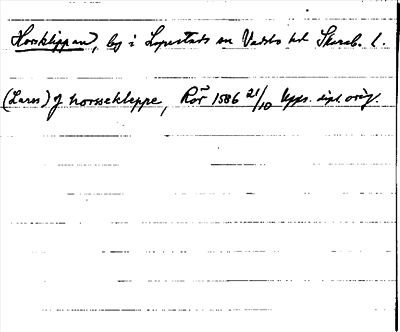 Horsklippan, by i Lyrestads sn Vadsbo hd Skarab. l.
(Lares) J horssekleppe, Rör 1586 21/10 Upps. dipl. orig.